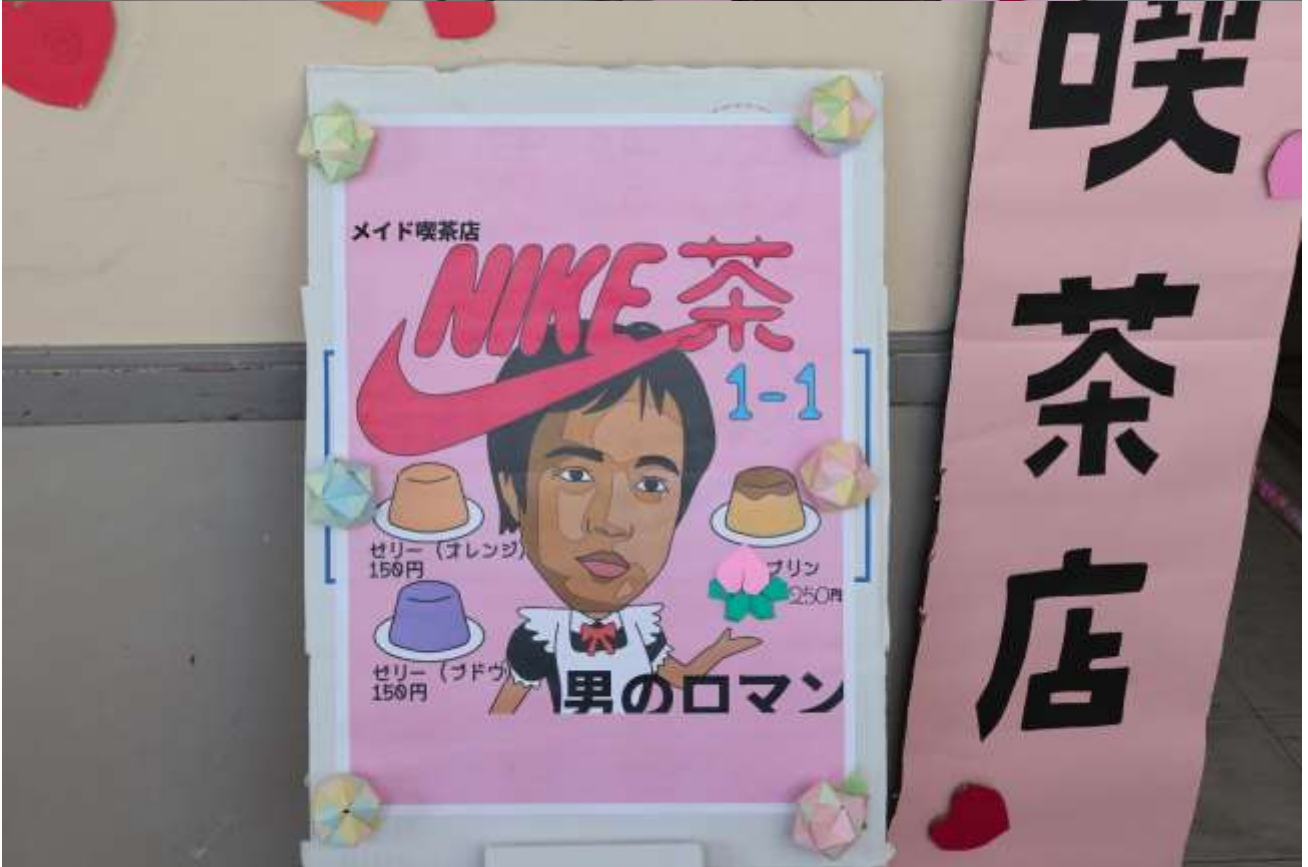 メイド喫茶店
NIKE茶
1-1
ゼリー（オレンジ）
150円
プリン
250円
ゼリー（ブドウ）
150円
男のロマン
喫茶店